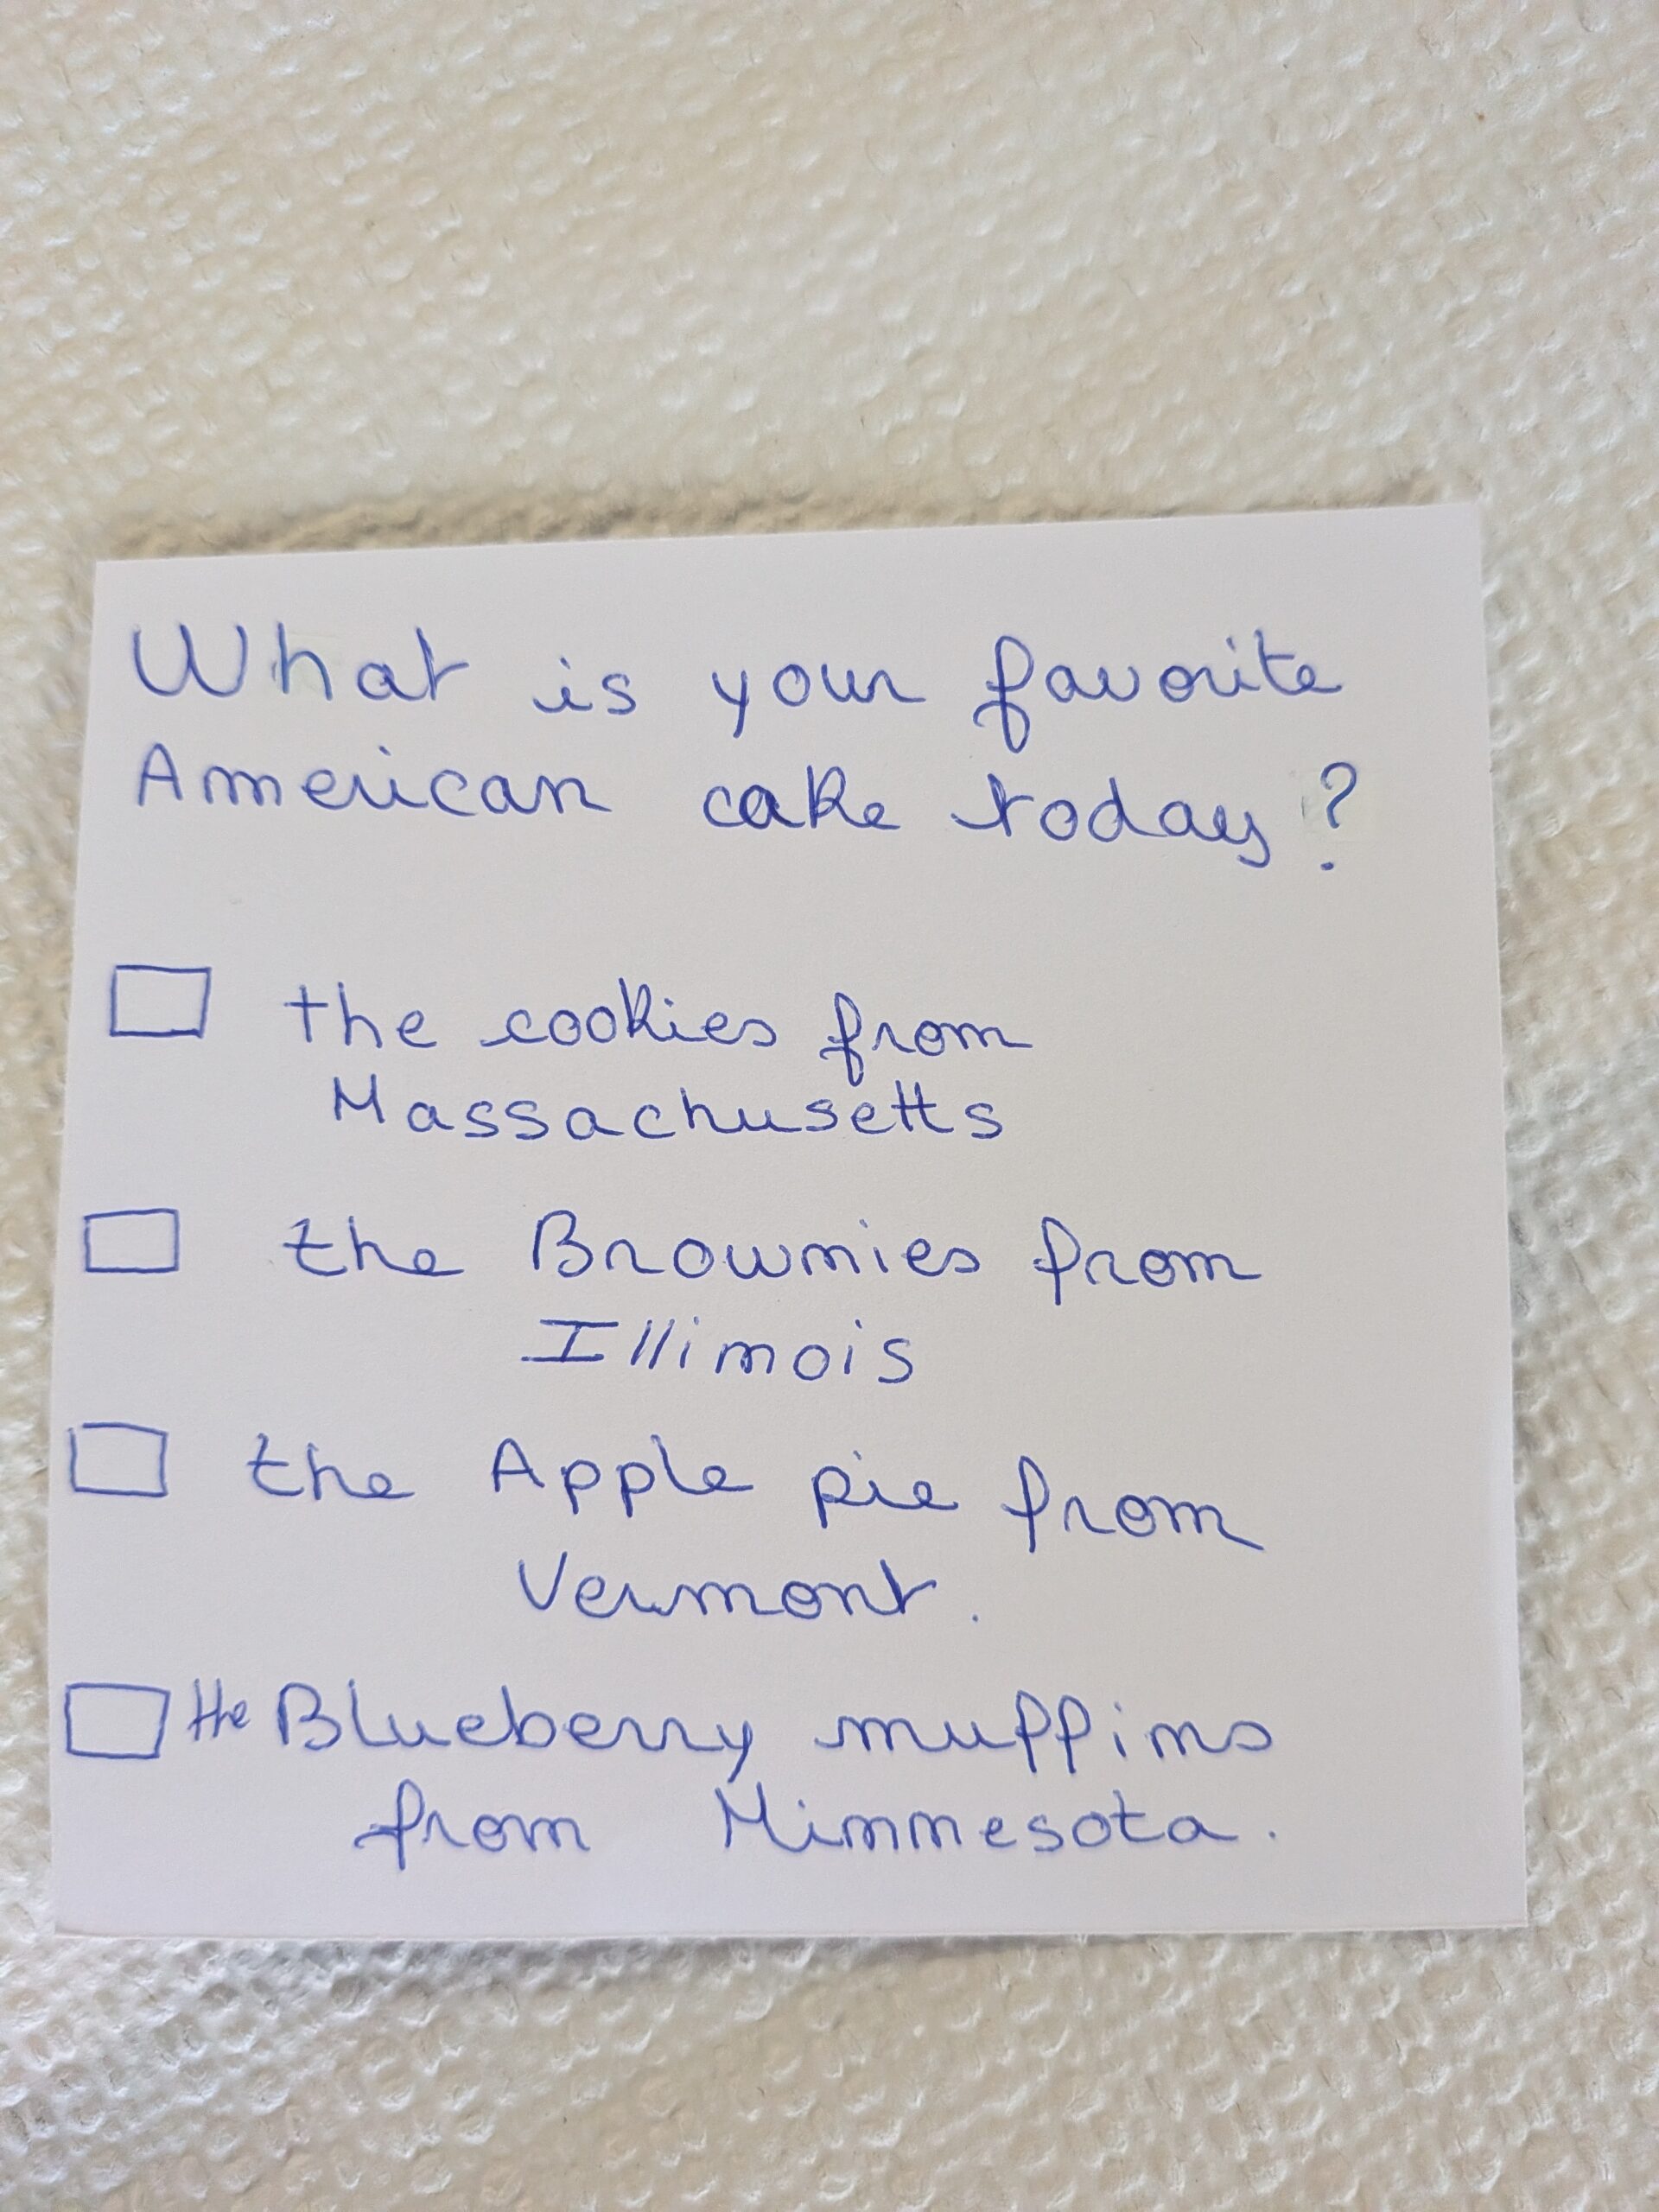 What is your favorite
American cake today ?
the cookies from
Massachusetts
the Brownies from
Illinois
the Apple pie from
Vermont.
the Blueberry muffins
from Minnesota.